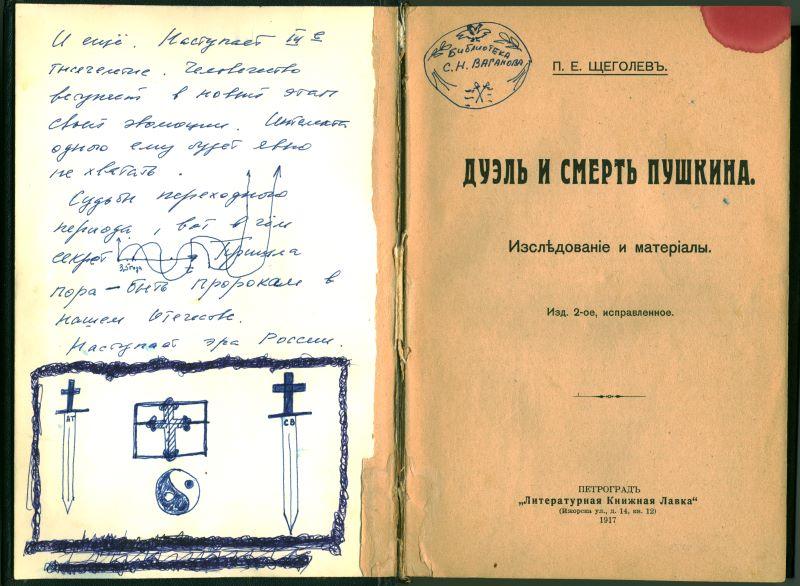 И ещё. Наступает IV е
тысячелетие. Человечество
вступает в новый этап
своей эволюции. Интеллекта
одного ему будет явно
не хватать.
Судьбы переходного
периода, вот в чём
секрет. Пришла
3,5 года
пора - быть пророкам в
нашем Отечестве.
Наступает эра России.
АТ
СВ
БИБЛИОТЕКА
С. Н. ВАГАНОВА
П. Е. ЩЕГОЛЕВЪ.
ДУЭЛЬ И СМЕРТЬ ПУШКИНА.
Изслѣдованіе и матеріалы.
Изд. 2-ое, исправленное.
ПЕТРОГРАДЪ
„Литературная Книжная Лавка“
(Ижорска ул., д. 14, кв. 12)
1917